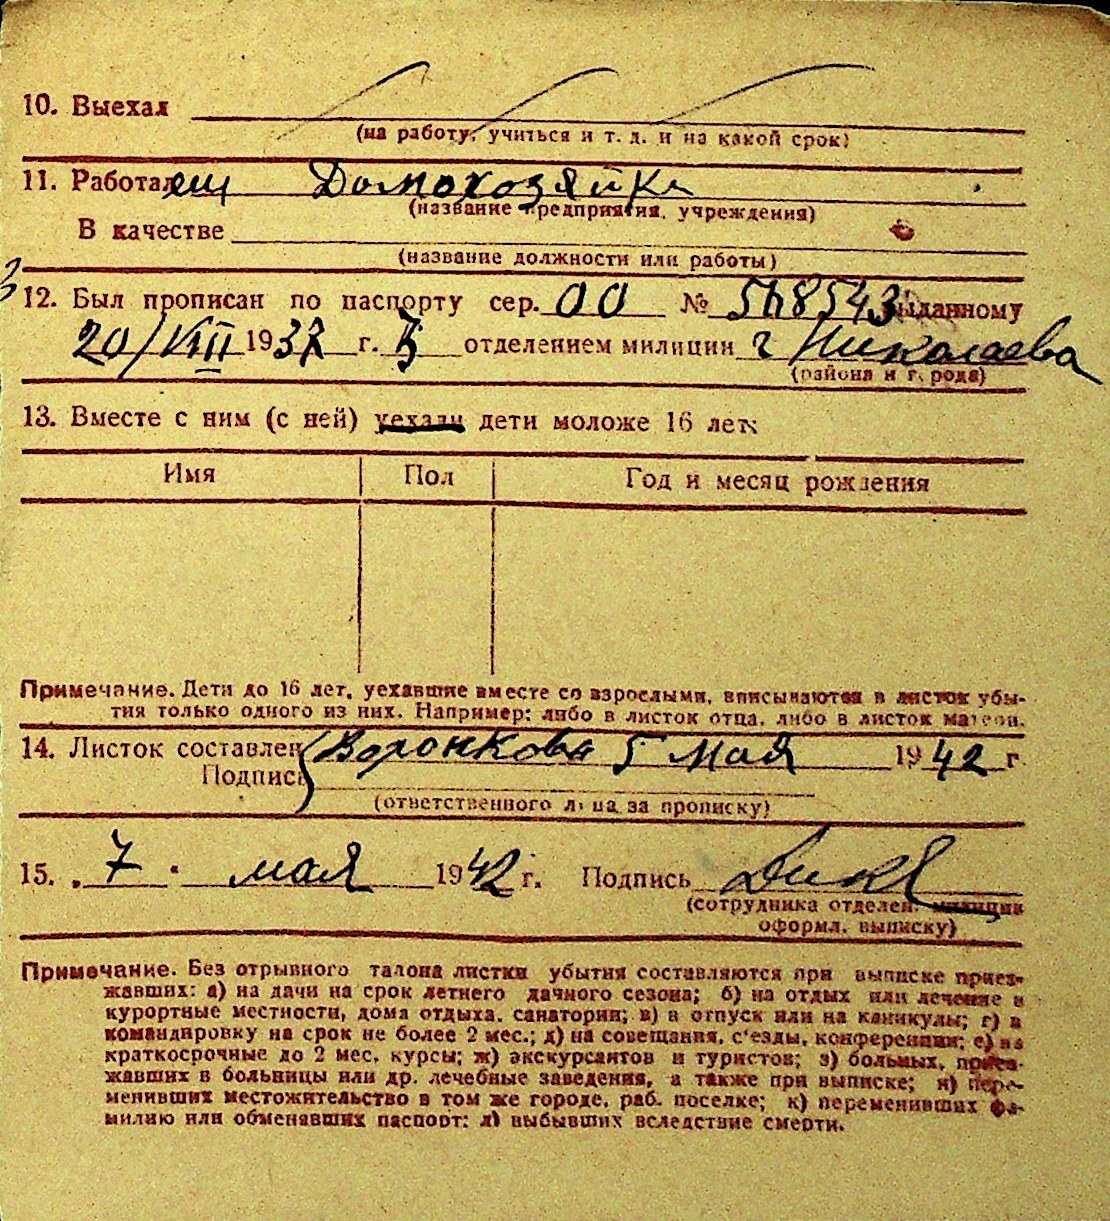 10. Выехал
(на работу, учиться и т. д. и на какой срок)
11. Работал Домохозяйка
(название предприятия, учреждения)
В качестве
(название должности или работы)
12. Был прописан по паспорту сер. 00 № 548543 выданному
20/VIII 1937 г. отделением милиции г Николаева
(района и города)
13. Вместе с ним (с ней) уехали дети моложе 16 лет:
Имя Пол Год и месяц рождения
Примечание. Дети до 16 лет, уехавшие вместе со взрослыми, вписываются в листок убы-
тия только одного из них. Например: либо в листок отца, либо в листок матери.
14. Листок составлен Воронкова 5 мая 1942 г
Подпись
(ответственного лица за прописку)
15. „7" мая 1942 г. Подпись
(сотрудника отделен. милиции
оформл. выписку)
Примечание. Без отрывного талона листки убытия составляются при выписке приез-
жавших: а) на дачи на срок летнего дачного сезона; б) на отдых или лечение в
курортные местности, дома отдыха, санатории; в) в отпуск или на каникулы; г) в
командировку на срок не более 2 мес.; д) на совещания, с'езды, конференции; е) на
краткосрочные до 2 мес. курсы; ж) экскурсантов и туристов; з) больных, приез-
жавших в больницы или др. лечебные заведения, а также при выписке; и) пере-
менивших местожительство в том же городе, раб. поселке; к) переменивших фа-
милию или обменявших паспорт; л) выбывших вследствие смерти.